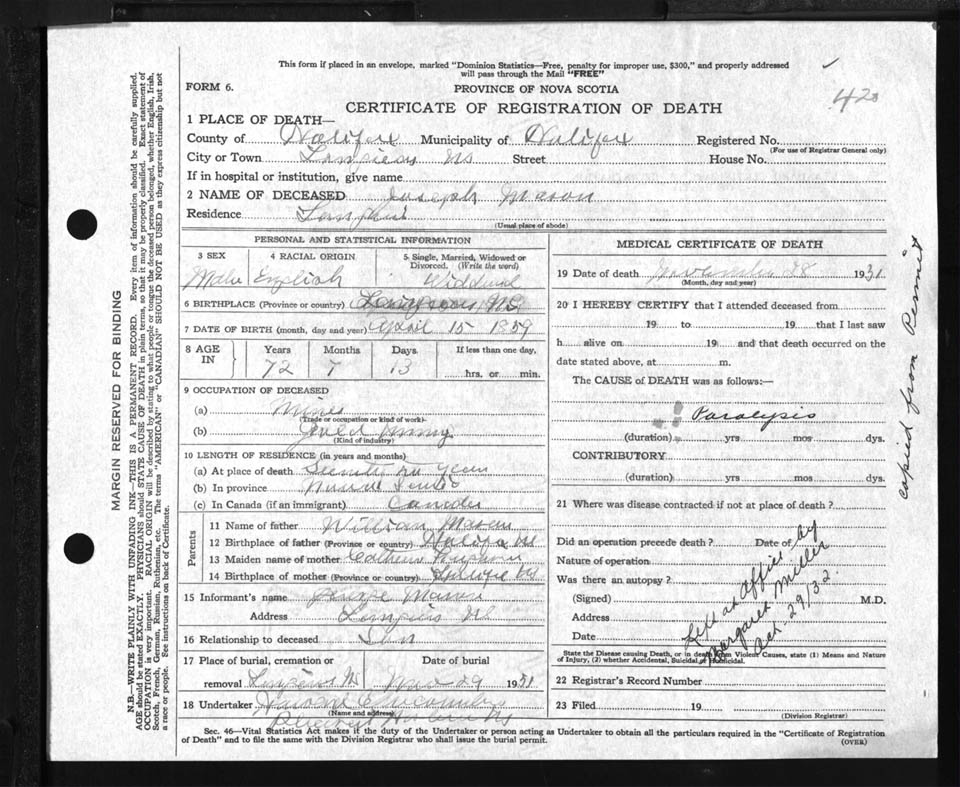 This form if placed in an envelope, marked "Dominion Statistics—Free, penalty for improper use, $300," and properly addressed
will pass through the Mail "FREE"
FORM 6.
PROVINCE OF NOVA SCOTIA
420
CERTIFICATE OF REGISTRATION OF DEATH
1 PLACE OF DEATH—
County of Halifax Municipality of Halifax Registered No.
(For use of Registrar General only)
City or Town NS Street House No.
If in hospital or institution, give name
2 NAME OF DECEASED Joseph Mason
Residence
(Usual place of abode)
PERSONAL AND STATISTICAL INFORMATION
3 SEX 4 RACIAL ORIGIN 5 Single, Married, Widowed or Divorced. (Write the word)
Male English
6 BIRTHPLACE (Province or country) NS
7 DATE OF BIRTH (month, day and year) April 15 1859
8 AGE IN Years Months Days If less than one day,
72 7 13 hrs. or min.
9 OCCUPATION OF DECEASED
(a)
(Trade or occupation or kind of work)
(b)
(Kind of industry)
10 LENGTH OF RESIDENCE (in years and months)
(a) At place of death
(b) In province
(c) In Canada (if an immigrant)
Parents
11 Name of father William Mason
12 Birthplace of father (Province or country)
13 Maiden name of mother
14 Birthplace of mother (Province or country)
15 Informant's name
Address
16 Relationship to deceased Son
17 Place of burial, cremation or removal Date of burial
29 1931
18 Undertaker
(Name and address)
MEDICAL CERTIFICATE OF DEATH
19 Date of death November 28 1931
(Month, day and year)
20 I HEREBY CERTIFY that I attended deceased from
19 to 19 that I last saw
h alive on 19 and that death occurred on the
date stated above, at m.
The CAUSE of DEATH was as follows:—
Paralysis
(duration) yrs mos dys.
CONTRIBUTORY
(duration) yrs mos dys.
21 Where was disease contracted if not at place of death?
Did an operation precede death? Date of
Nature of operation
Was there an autopsy?
(Signed) M.D.
Address
Date
Left at Office by
Margaret Miller
Oct. 29/32.
State the Disease causing Death, or in death from Violent Causes, state (1) Means and Nature
of Injury, (2) whether Accidental, Suicidal or Homicidal.
22 Registrar's Record Number
23 Filed 19
(Division Registrar)
Sec. 46—Vital Statistics Act makes it the duty of the Undertaker or person acting as Undertaker to obtain all the particulars required in the "Certificate of Registration
of Death" and to file the same with the Division Registrar who shall issue the burial permit.
(OVER)
copied from Permit
MARGIN RESERVED FOR BINDING
N.B.—WRITE PLAINLY WITH UNFADING INK—THIS IS A PERMANENT RECORD. Every item of information should be carefully supplied.
AGE should be stated EXACTLY. PHYSICIANS should STATE CAUSE OF DEATH in plain terms, so that it may be properly classified. Exact statement of
OCCUPATION is very important. RACIAL ORIGIN will be described by stating to what people or tongue the deceased person belonged, whether English, Irish,
Scotch, French, German, Russian, Ruthenian, etc. The terms "AMERICAN" or "CANADIAN" SHOULD NOT BE USED as they express citizenship but not
a race or people. See instructions on back of Certificate.